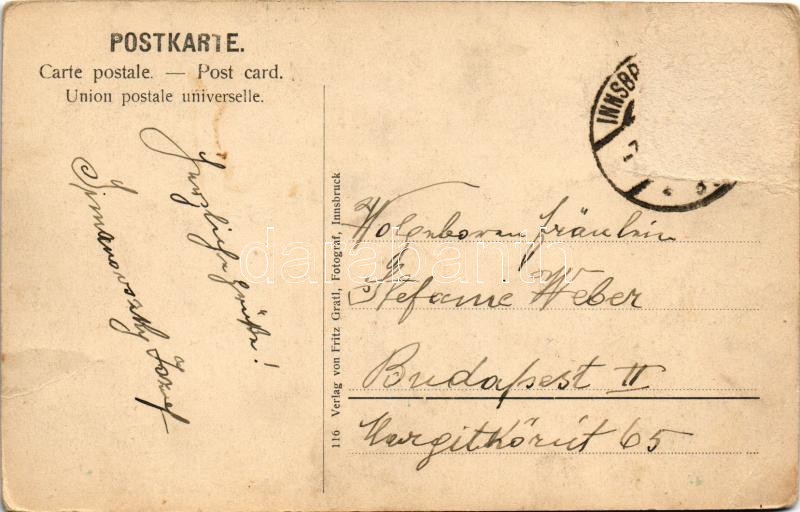 POSTKARTE.
Carte postale. — Post card.
Union postale universelle.
Herzliche grüße!
Simanovszky József
116 Verlag von Fritz Gratl, Fotograf, Innsbruck
INNSBR
Wolgeboren fräulein
Stefanie Weber
Budapest II
Margitkörút 65
darabanth